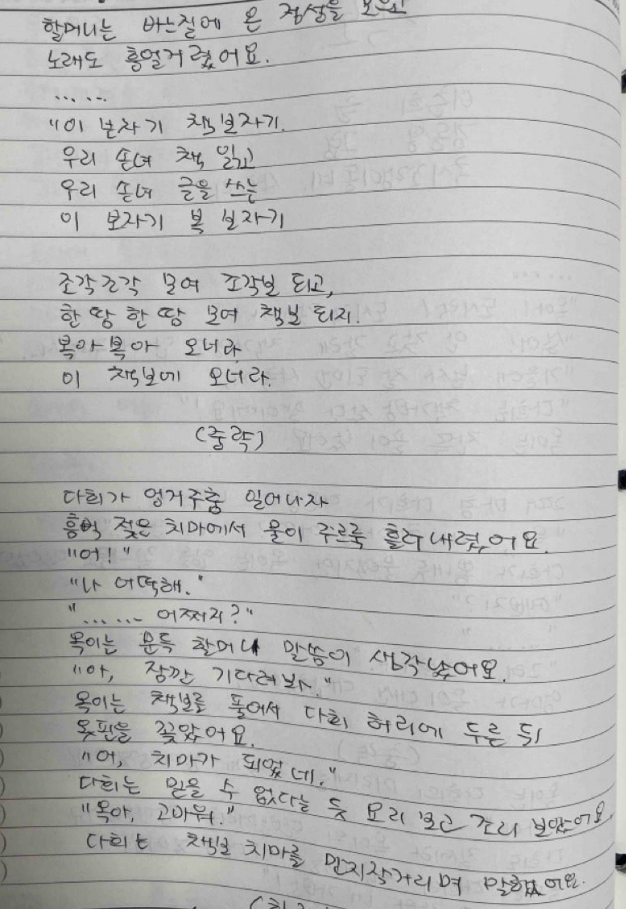 할머니는 바느질에 온 정성을 모으고
노래도 흥얼거렸어요.
……
"이 보자기 책보자기.
우리 손녀 책 읽고
우리 손녀 글을 쓰는
이 보자기 복 보자기
조각조각 모여 조각보 되고,
한 땀 한 땀 모여 책보 되지.
복아 복아 오너라
이 책보에 오너라.
(중략)
다희가 엉거주춤 일어나자
흠뻑 젖은 치마에서 물이 주르륵 흘러내렸어요.
"어!"
"나 어떡해."
"…… 어쩌지?"
옥이는 문득 할머니 말씀이 생각났어요.
"아, 잠깐 기다려봐."
옥이는 책보를 풀어서 다희 허리에 두른 뒤
옷핀을 꽂았어요.
"어, 치마가 되었네."
다희는 믿을 수 없다는 듯 요리 보고 조리 보았어요.
"옥아, 고마워."
다희는 책보 치마를 만지작거리며 말했어요.